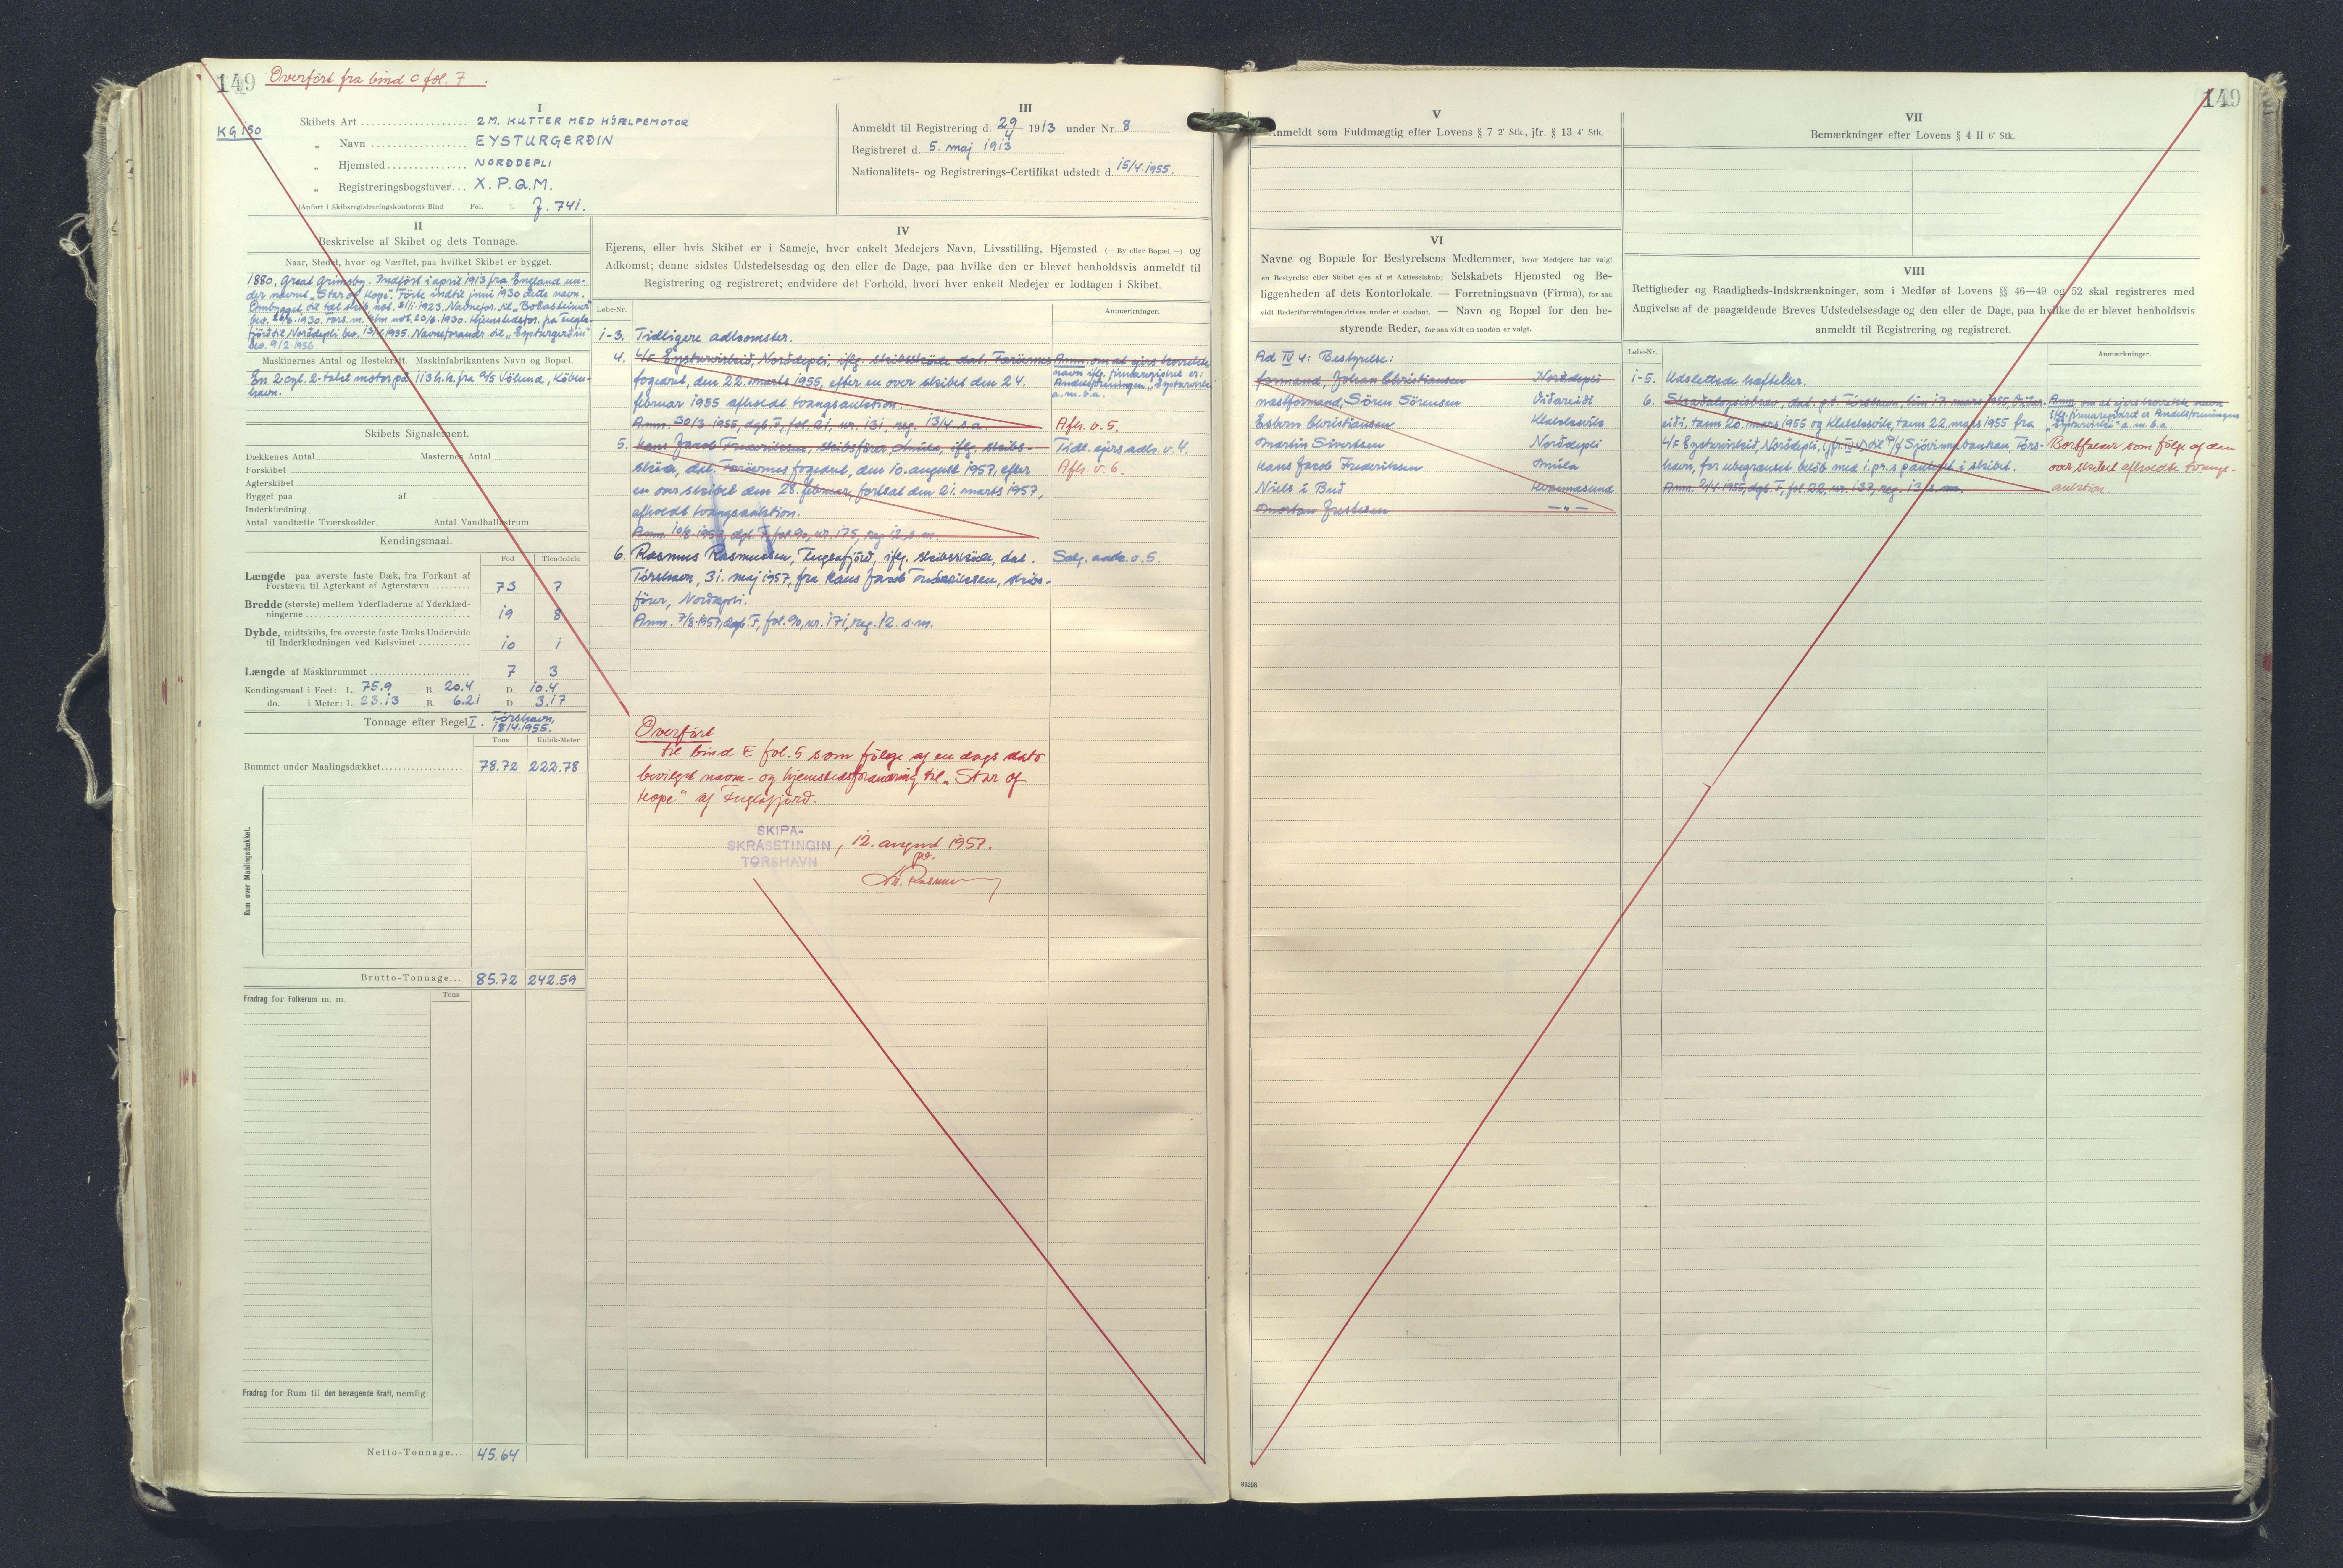 149 Overført fra bind C fol. 7.
KG 150
I
Skibets Art 2 M. KUTTER MED HJÆLPEMOTOR
„ Navn EYSTURGERÐIN
„ Hjemsted NORÐDEPLI
„ Registreringsbogstaver... X.P.Q.M.
(Anført i Skibsregistreringskontorets Bind Fol. ). J. 741.
III
Anmeldt til Registrering d. 29/4 1913 under Nr. 8
Registreret d. 5. maj 1913
Nationalitets- og Registrerings-Certifikat udstedt d. 15/4.1955.
II
Beskrivelse af Skibet og dets Tonnage.
Naar, Stedet, hvor og Værftet, paa hvilket Skibet er bygget.
1880, Great Grimsby. Indført i april 1913 fra England un-
der navnet „Star of Hope". Førte indtil juni 1930 dette navn.
Ombygget til
fjörð til Norðdepli bev. 13/4 1955. Navneforandr. til „Eysturgerðin"
bev. 9/2 1956.
Maskinernes Antal og Hestekraft. Maskinfabrikantens Navn og Bopæl.
En 2-cyl. 2-takt motor på 113 h.k. fra A/S Völund, Köben-
havn.
Skibets Signalement.
Dækkenes Antal Masternes Antal
Forskibet
Agterskibet
Bygget paa af
Inderklædning
Antal vandtætte Tværskodder Antal Vandballastrum
Kendingsmaal.
Fod Tiendedele
Længde paa øverste faste Dæk, fra Forkant af
Forstævn til Agterkant af Agterstævn 73 7
Bredde (største) mellem Yderfladerne af Yderklæd-
ningerne 19 8
Dybde, midtskibs, fra øverste faste Dæks Underside
til Inderklædningen ved Kølsvinet 10 1
Længde af Maskinrummet 7 3
Kendingsmaal i Feet: L. 75.9 B. 20.4 D. 10.4
do. i Meter: L. 23.13 B. 6.21 D. 3.17
Tonnage efter Regel I. Tórshavn, 18/4.1955.
Tons Kubik-Meter
Rummet under Maalingsdækket 78.72 222.78
Rum over Maalingsdækket.
Brutto-Tonnage... 85.72 242.59
Fradrag for Folkerum m. m. Tons
Fradrag for Rum til den bevægende Kraft, nemlig:
Netto-Tonnage... 45.64
IV
Ejerens, eller hvis Skibet er i Sameje, hver enkelt Medejers Navn, Livsstilling, Hjemsted (— By eller Bopæl —) og
Adkomst; denne sidstes Udstedelsesdag og den eller de Dage, paa hvilke den er blevet henholdsvis anmeldt til
Registrering og registreret; endvidere det Forhold, hvori hver enkelt Medejer er lodtagen i Skibet.
Løbe-Nr. Anmærkninger.
1-3. Tidligere adkomster.
4. L/F Eysturvirkið, Norðdepli, iflg. skibsskøde dat. Færøernes
fogeant, den 22. marts 1955, efter en over skibet den 24.
februar 1955 afholdt tvangsauktion.
Anm. 30/3 1955, dgb. F, fol. 21, nr. 131, reg. 13/4 s.a.
Anm. om at ejers korrekte
navn iflg. firmaregistret er:
Andelsforeningen „Eysturvirki"
a.m.b.a.
Afl. v. 5.
5. Hans Jacob Frederiksen, skibsfører, Múla, iflg. skibs-
skøde, dat. Færøernes fogeant, den 10. august 1957, efter
en over skibet den 28. februar, fortsat den 21. marts 1957,
afholdt tvangsauktion.
Anm. 10/8 1957, dgb. F, fol. 90, nr. 175, reg. 12. s.m.
Tidl. ejers adk. v. 4.
Afl. v. 6.
6. Rasmus Rasmussen, Fuglafjörð, iflg. skibsskøde, dat.
Tórshavn, 31. maj 1957, fra Hans Jacob Frederiksen, skibs-
fører, Norðdepli.
Anm. 7/8.1957, dgb. F, fol. 90, nr. 171, reg. 12. s.m.
Sælg. adk. v. 5.
Overført
til bind E fol. 5 som følge af en dags dato
bevilget navne- og hjemstedsforandring til „Star of
Hope" af Fuglafjörð.
SKIPA-
SKRÁSETINGIN
TÓRSHAVN
, 12. august 1957.
149
V
Anmeldt som Fuldmægtig efter Lovens § 7 2' Stk., jfr. § 13 4' Stk.
VI
Navne og Bopæle for Bestyrelsens Medlemmer, hvor Medejere har valgt
en Bestyrelse eller Skibet ejes af et Aktieselskab; Selskabets Hjemsted og Be-
liggenheden af dets Kontorlokale. — Forretningsnavn (Firma), for saa
vidt Rederiforretningen drives under et saadant. — Navn og Bopæl for den be-
styrende Reder, for saa vidt en saadan er valgt.
Ad IV 4: Bestyrelse:
formand, Johan Christiansen Norðdepli
næstformand, Sören Sörensen Viðareiði
Esbern Christiansen Klaksvík
Martin Sivertsen Norðdepli
Hans Jacob Frederiksen Múla
Niels í Búð Hvannasund
Mortan Justesen — „ —
VII
Bemærkninger efter Lovens § 4 II 6' Stk.
VIII
Rettigheder og Raadigheds-Indskrænkninger, som i Medfør af Lovens §§ 46—49 og 52 skal registreres med
Angivelse af de paagældende Breves Udstedelsesdag og den eller de Dage, paa hvilke de er blevet henholdsvis
anmeldt til Registrering og registreret.
Løbe-Nr. Anmærkninger.
1-5. Udslettede hæftelser.
6. Skaðaloysisbrøv, dat. Tórshavn, tann 17. mars 1955, Viðar-
eiði, tann 20. mars 1955 og Klaksvík, tann 22. mars 1955 fra
L/F Eysturvirkið, Norðdepli, (jfr. IV 4) til P/f Sjóvinnubankan, Tórs-
havn, for ubegrænset beløb med 1. pr.s panteret i skibet.
Anm. 2/4 1955, dgb. F, fol. 22, nr. 137, reg. 13. s.m.
Anm. om at ejers korrekte navn
iflg. firmaregistret er Andelsforeningen
„Eysturvirki" a.m.b.a.
Bortfalder som følge af den
over skibet afholdte tvangs-
auktion.
86398